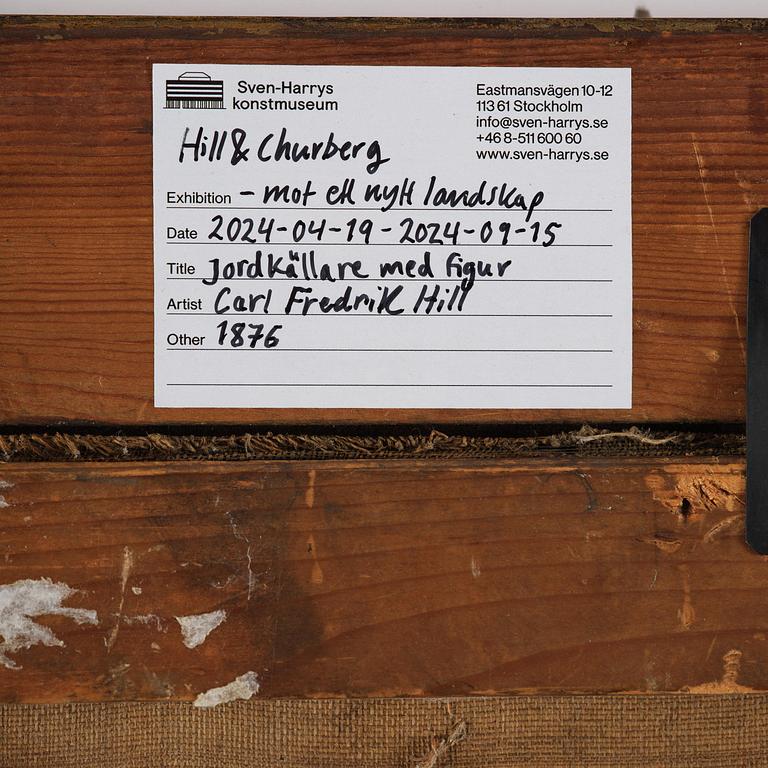 Sven-Harrys
konstmuseum
Eastmansvägen 10-12
113 61 Stockholm
info@sven-harrys.se
+46 8-511 600 60
www.sven-harrys.se
Hill & Churberg
Exhibition - mot ett nytt landskap
Date 2024-04-19 - 2024-09-15
Title Jordkällare med figur
Artist Carl Fredrik Hill
Other 1876